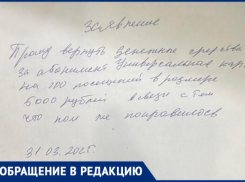 Заявление
Прошу вернуть денежные средства
за абонемент Универсальная карта
на 100 посещений в размере
5000 рублей в связи с тем
что нам не понравилось
31.03.2025.
ОБРАЩЕНИЕ В РЕДАКЦИЮ